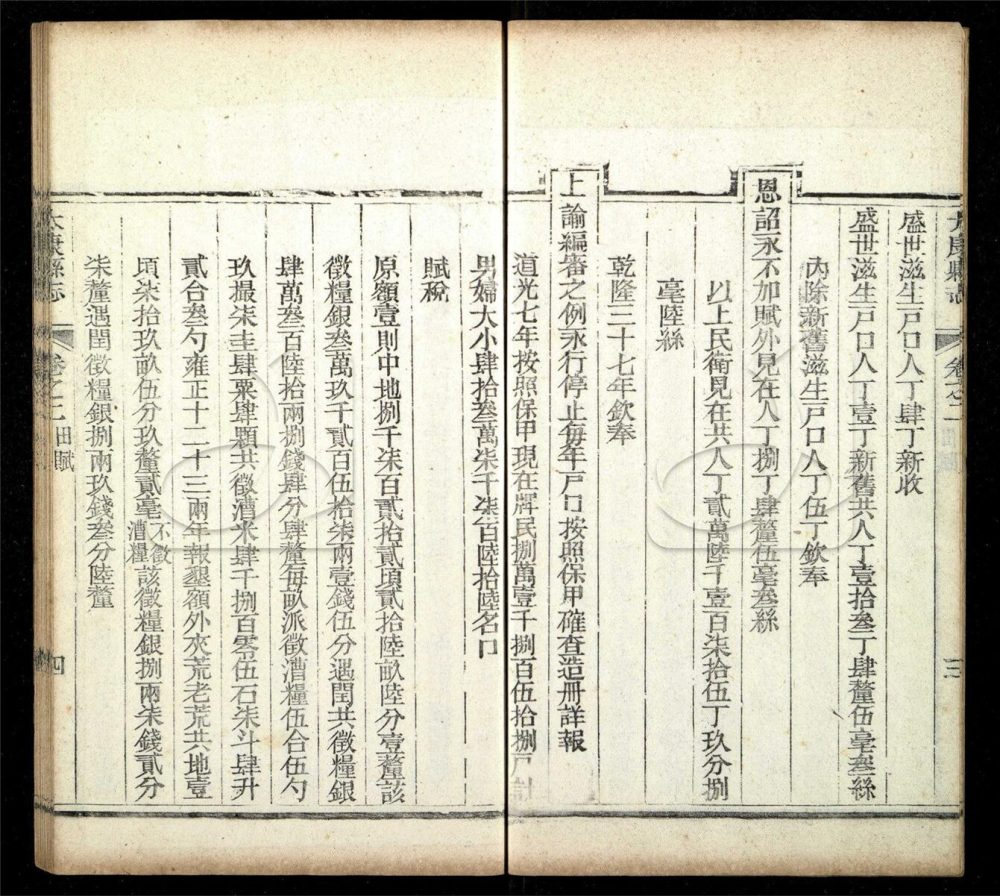 太康縣志 卷之二 三
盛世滋生戶口人丁肆丁新收
盛世滋生戶口人丁壹丁新舊共人丁壹拾叁丁肆釐伍毫叁絲
內除新舊滋生戶口人丁伍丁欽奉
恩詔永不加賦外見在人丁捌丁肆釐伍毫叁絲
以上民衛見在共人丁貳萬陸千壹百柒拾伍丁玖分捌
毫陸絲
乾隆三十七年欽奉
上諭編審之例永行停止每年戶口按照保甲確查造冊詳報
道光七年按照保甲現在牌民捌萬壹千捌百伍拾捌戶計
男婦大小肆拾叁萬柒千柒百陸拾陸名口
賦稅
原額壹則中地捌千柒百貳拾貳頃貳拾陸畝陸分壹釐該
徵糧銀叁萬玖千貳百伍拾柒兩壹錢伍分遇閏共徵糧銀
肆萬叁百陸拾兩捌錢肆分肆釐每畝派徵漕糧伍合伍勺
玖撮柒圭肆粟肆顆共徵漕米肆千捌百零伍石柒斗肆升
貳合叁勺雍正十二十三兩年報墾額外夾荒老荒共地壹
頃柒拾玖畝伍分玖釐貳毫不徵漕糧該徵糧銀捌兩柒錢貳分
柒釐遇閏徵糧銀捌兩玖錢叁分陸釐
太康縣志 卷之二 田賦 四